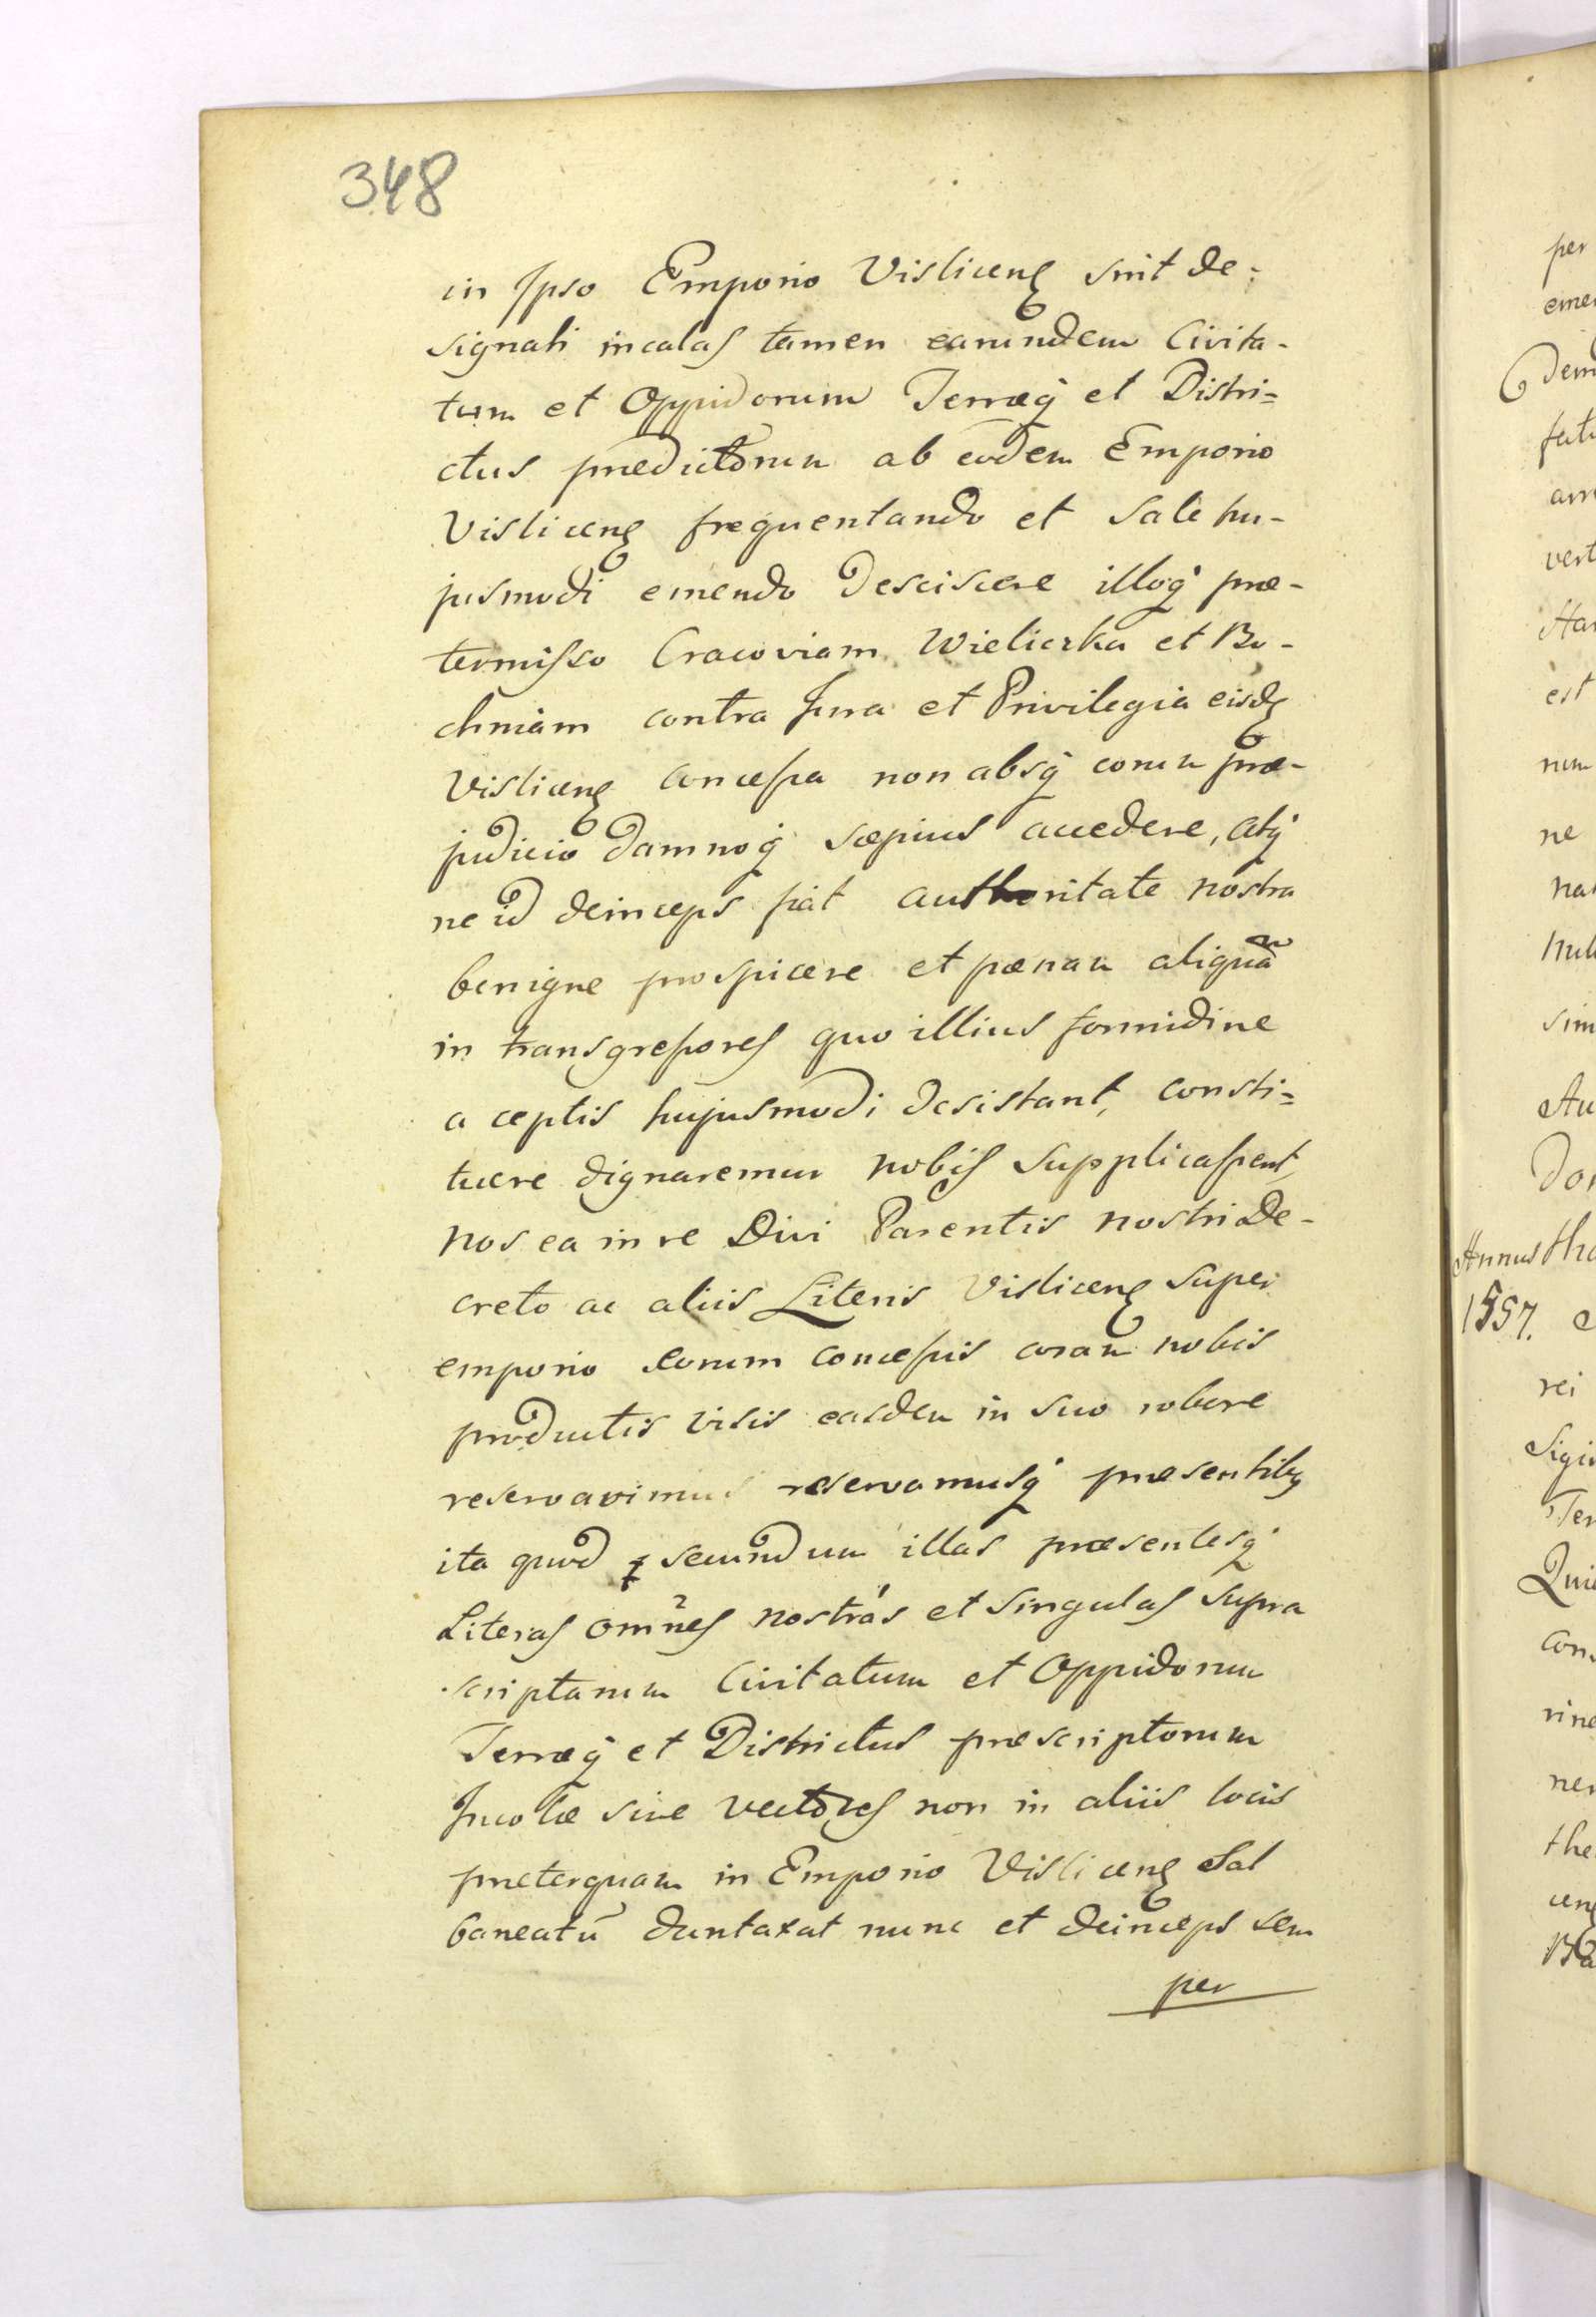 348
in Ipso Emporio Visliceng sint de-
signati incolas tamen earumdem Civita-
tum et Oppidorum Terræq et Distri=
ctus prædictorum ab eodem Emporio
Visliceng frequentando et Sale hu-
jusmodi emendo desciscere illoq præ-
termisso Cracoviam Wieliczka et Bo-
chniam contra Jura et Privilegia eisdę
Visliceng concessa non absq eorum præ-
judicio damnoq sæpius accedere, atq
ne id deinceps fiat authoritate nostra
benigne prospicere et pœnam aliquã
in transgressores quo illius formidine
a ceptis hujusmodi desistant, consti=
tuere dignaremur nobis Supplicassent,
Nos ea in re Divi Parentis nostri De-
creto ac aliis Literis Visliceng super
emporio eorum concessis coram nobis
productis visis easdem in suo robore
reservavimus reservamusq præsentibq
ita quod secundum illas præsentesq
Literas om̃nes nostras et singulas supra
scriptarum Civitatum et Oppidorum
Terræq et Districtus præscriptorum
Incolæ sive vectores non in aliis locis
præterquam in Emporio Visliceng Sal
baneatũ duntaxat nunc et deinceps sem
per
per
est
ne
Annus
1557.
rei